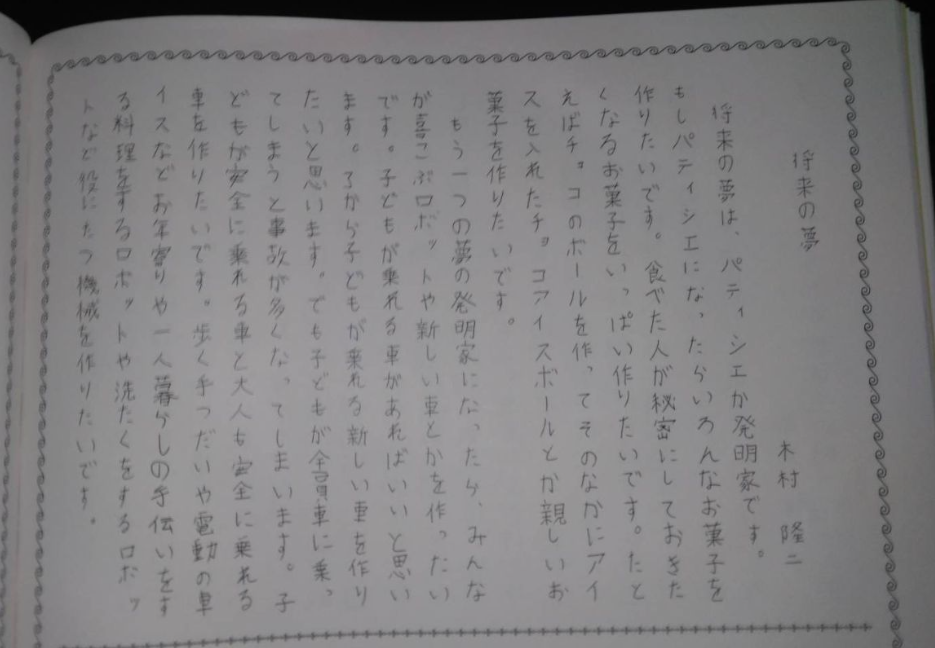 将来の夢
木村 隆二
将来の夢は、パティシエか発明家です。
もしパティシエになったらいろんなお菓子を
作りたいです。食べた人が秘密にしておきた
くなるお菓子をいっぱい作りたいです。たと
えばチョコのボールを作ってそのなかにアイ
スを入れたチョコアイスボールとか親しいお
菓子を作りたいです。
もう一つの夢の発明家になったら、みんな
が喜こぶロボットや新しい車とかを作ったい
です。子どもが乗れる車があればいいと思い
ます。だから子どもが乗れる新しい車を作り
たいと思います。でも子どもが全員車に乗っ
てしまうと事故が多くなってしまいます。子
どもが安全に乗れる車と大人も安全に乗れる
車を作りたいです。歩く手つだいや電動の車
イスなどお年寄りや一人暮らしの手伝いをす
る料理をするロボットや洗たくをするロボッ
トなど役にたつ機械を作りたいです。